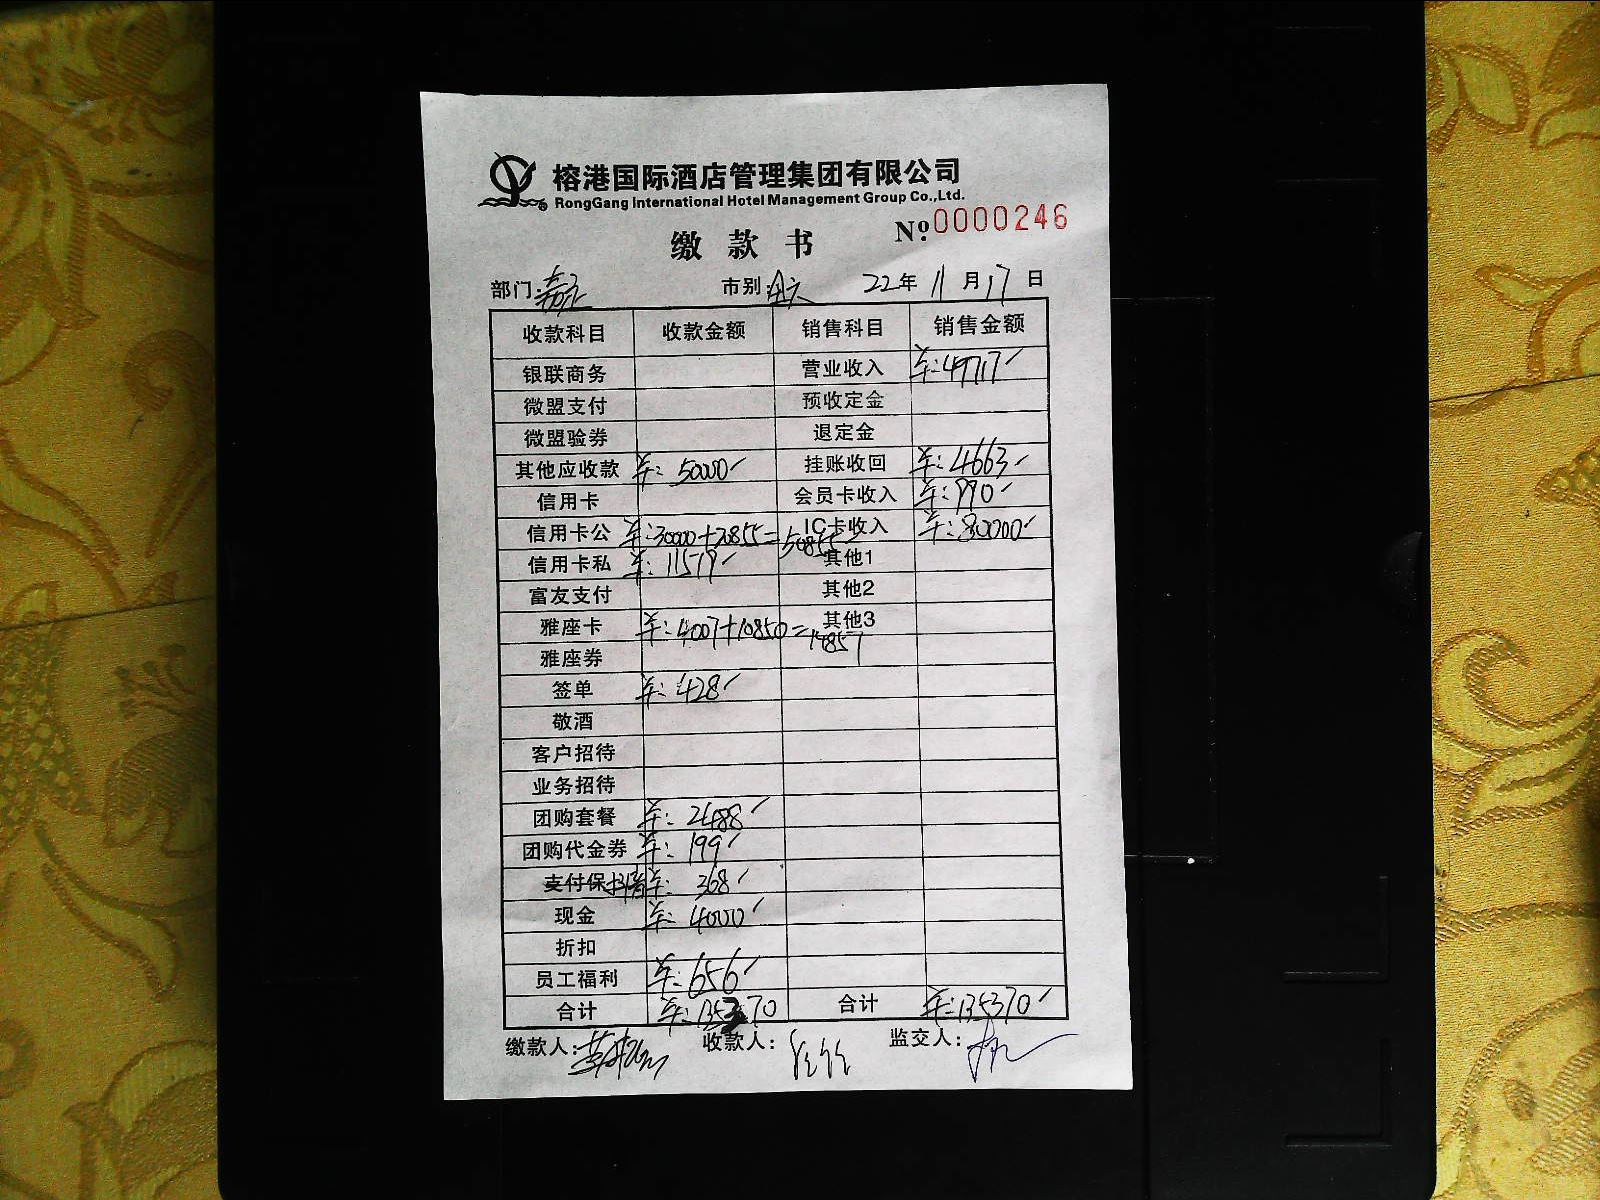 榕港国际酒店管理集团有限公司
RongGang International Hotel Management Group Co.,Ltd.
缴款书 №0000246
部门: 市别:全天 22年11月17日
收款科目 收款金额 销售科目 销售金额
银联商务 营业收入 ¥:49717
微盟支付 预收定金
微盟验券 退定金
其他应收款 ¥:50000 挂账收回 ¥:4663
信用卡 会员卡收入 ¥:990
信用卡公 ¥:30000+20855=50855 IC卡收入 ¥:80000
信用卡私 ¥:11519 其他1
富友支付 其他2
雅座卡 ¥:4007+10850=14857 其他3
雅座券
签单 ¥:428
敬酒
客户招待
业务招待
团购套餐 ¥:2488
团购代金券 ¥:199
支付保 抖音 ¥:368
现金 ¥:4000
折扣
员工福利 ¥:656
合计 ¥:135370 合计 ¥:135370
缴款人: 收款人: 监交人: